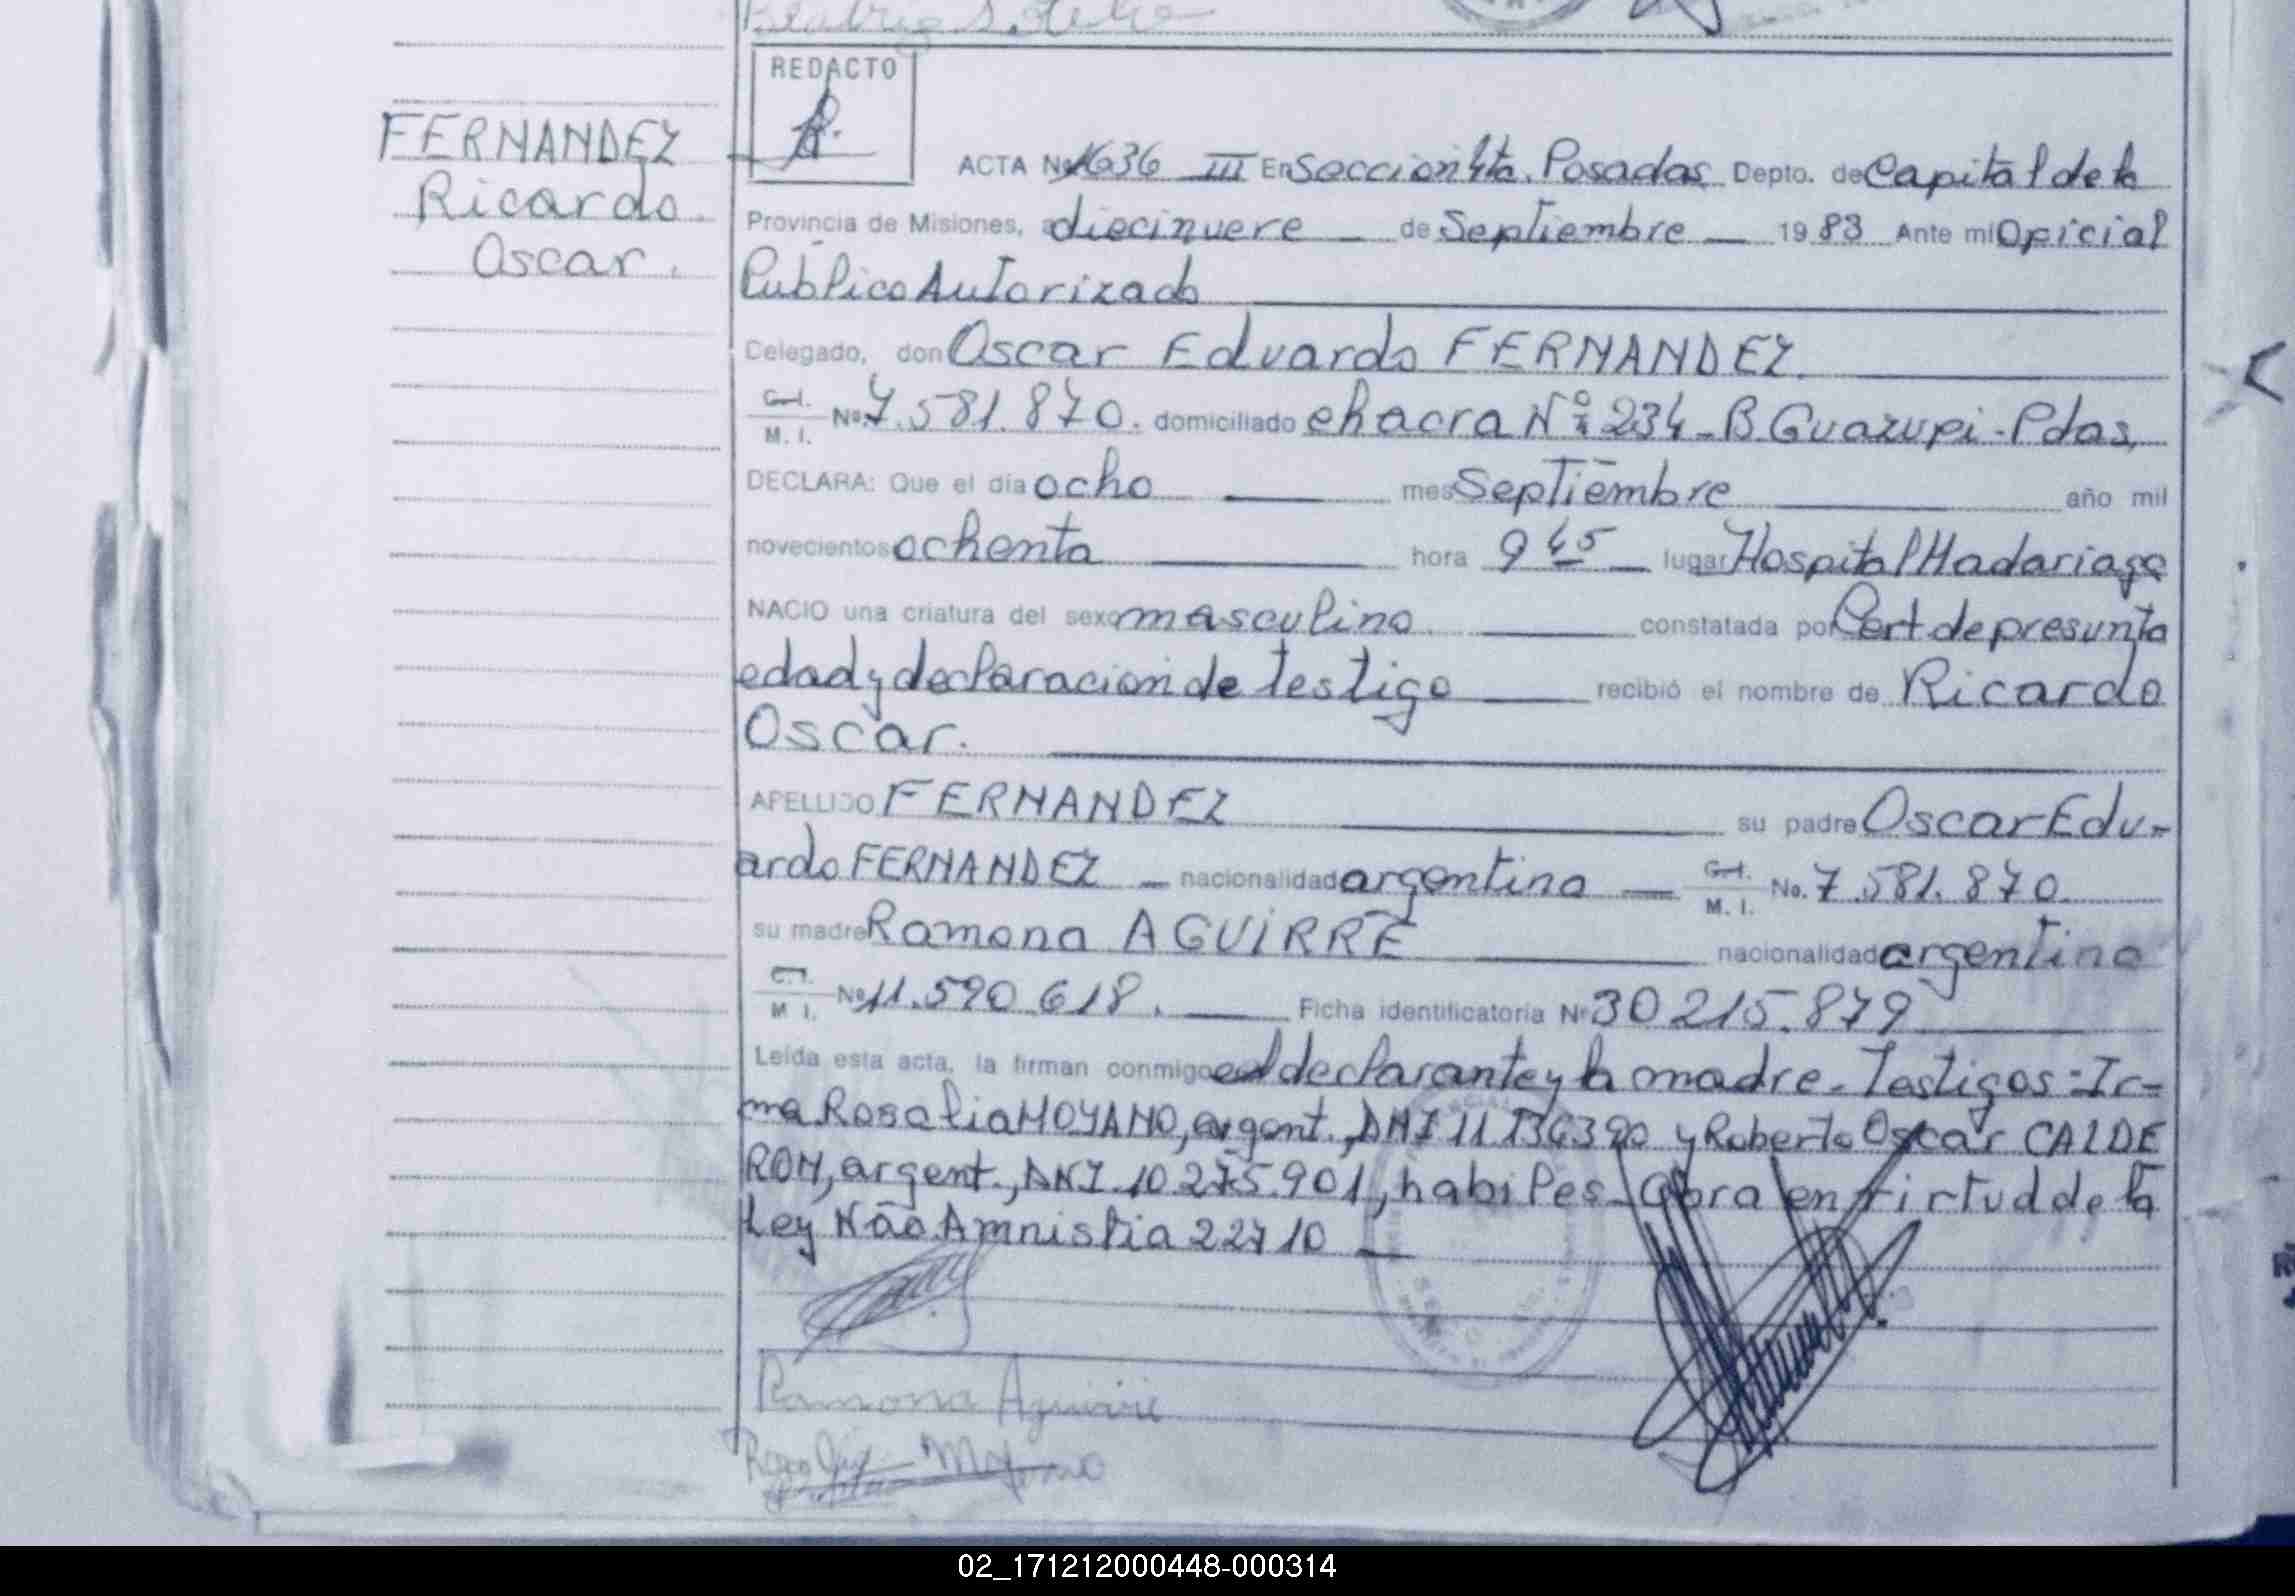 REDACTO
FERNANDEZ
Ricardo
Oscar.
ACTA Nº 1636 III En Seccion 4ta. Posadas Depto. de Capital de la
Provincia de Misiones, a diecinueve de Septiembre 1983 Ante mi Oficial
Publico Autorizado
Delegado, don Oscar Eduardo FERNANDEZ.
C.I. M. I. Nº 7.581.870. domiciliado chacra Nº 234 - B. Guazupi - Pdas,
DECLARA: Que el día ocho mes Septiembre año mil
novecientos ochenta hora 9 45 lugar Hospital Madariaga
NACIO una criatura del sexo masculino constatada por Cert de presunta
edad y declaracion de testigo recibió el nombre de Ricardo
Oscar.
APELLIDO FERNANDEZ su padre Oscar Edu-
ardo FERNANDEZ nacionalidad argentino C.I. M. I. No. 7.581.870
su madre Ramona AGUIRRE nacionalidad argentina
C.I. M I. Nº 11.590.618. Ficha identificatoria Nº 30 215.879
Leída esta acta, la firman conmigo el declarante y la madre - Testigos: Ir-
ma Rosalia MOYANO, argent., DNI 11 136390 y Roberto Oscar CALDE
RON, argent., DNI. 10.275.901, habiles - Obra en virtud de la
Ley Amnistia 22710
Ramona Aguirre
02_171212000448-000314